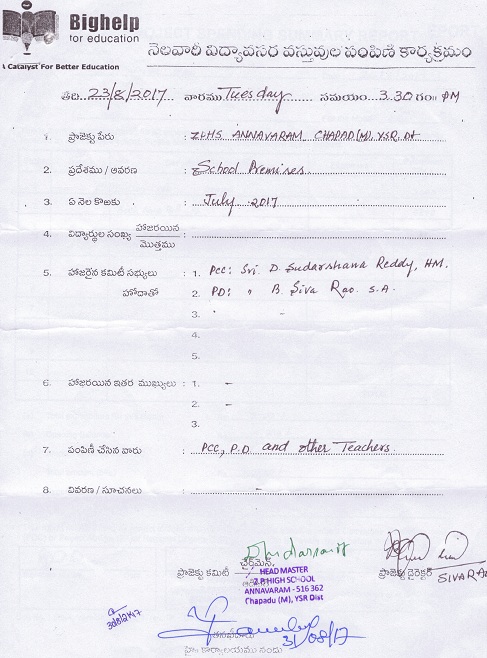 Bighelp
for education
A Catalyst For Better Education
నెలవారీ విద్యావసర వస్తువుల పంపిణి కార్యక్రమం
తేది 23/8/2017 వారము Tuesday సమయం 3.30 గం॥ PM
1. ప్రాజెక్టు పేరు : ZPHS ANNAVARAM, CHAPAD(M), YSR Dt
2. ప్రదేశము / ఆవరణ : School Premises
3. ఏ నెల కొఱకు : July 2017
4. విద్యార్థుల సంఖ్య హాజరయిన :
మొత్తము
5. హాజరైన కమిటీ సభ్యులు : 1. PCC: Sri. D. Sudarshana Reddy, HM.
హోదాతో 2. PD: " B. Siva Rao. S.A.
3. -
4.
5.
6. హాజరయిన ఇతర ముఖ్యులు : 1. -
2. -
3.
7. పంపిణీ చేసిన వారు : PCC, P.D and other Teachers.
8. వివరణ / సూచనలు : -
ఛైర్మెన్,
ప్రాజెక్టు కమిటీ
ప్రాజెక్టు డైరెక్టర్
HEAD MASTER
Z.P.HIGH SCHOOL
ANNAVARAM - 516 362
Chapadu (M), YSR Dist
SIVARAO
31/08/17
హై కార్యాలయము నందు